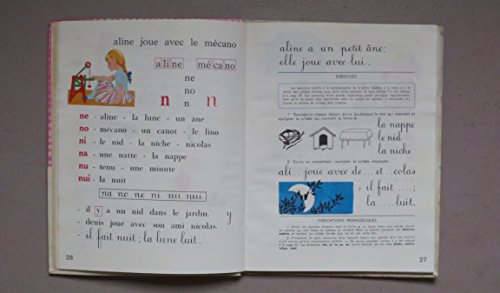 aline joue avec le mécano
aline mécano
ne
no
n n n
ne - aline - la lune - un ane
no - mécano - un canot - le lino
ni - le nid - la niche - nicolas
na - une natte - la nappe
nu - tenu - une minute
nui - la nuit
na no ne ni nu nui
- il y a un nid dans le jardin. y
- denis joue avec son ami nicolas.
- il fait nuit; la lune luit.
26
aline a un petit âne;
elle joue avec lui.
EXERCICES
la nappe
le nid
la niche
2° Écris en complétant; souligner la syllabe employée
ali... joue avec de... et ..colas
il fait ....;
la .... luit.
INDICATIONS PÉDAGOGIQUES
27